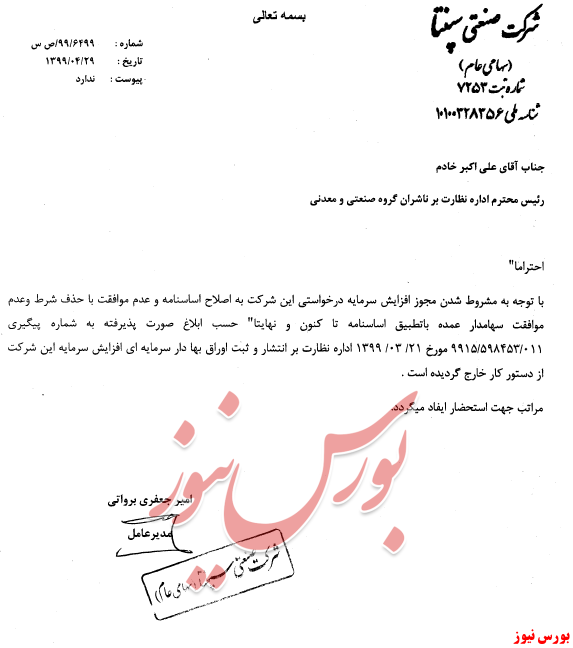 بسمه تعالی
شرکت صنعتی سپنتا
(سهامی عام)
شماره ثبت ۷۲۵۳
شناسه ملی ۱۰۱۰۰۳۲۸۳۵۶
شماره : ۹۹/۶۴۹۹/ص س
تاریخ : ۱۳۹۹/۰۴/۲۹
پیوست : ندارد
جناب آقای علی اکبر خادم
رئیس محترم اداره نظارت بر ناشران گروه صنعتی و معدنی
احتراما"
با توجه به مشروط شدن مجوز افزایش سرمایه درخواستی این شرکت به اصلاح اساسنامه و عدم موافقت با حذف شرط وعدم
موافقت سهامدار عمده باتطبیق اساسنامه تا کنون و نهایتا" حسب ابلاغ صورت پذیرفته به شماره پیگیری
۹۹۱۵/۵۹۸۴۵۳/۰۱۱ مورخ ۲۱/ ۰۳/ ۱۳۹۹ اداره نظارت بر انتشار و ثبت اوراق بها دار سرمایه ای افزایش سرمایه این شرکت
از دستور کار خارج گردیده است .
مراتب جهت استحضار ایفاد میگردد.
بورس نیوز
امیر جعفری برواتی
مدیرعامل
شرکت صنعتی سپنتا (سهامی عام)
بورس نیوز